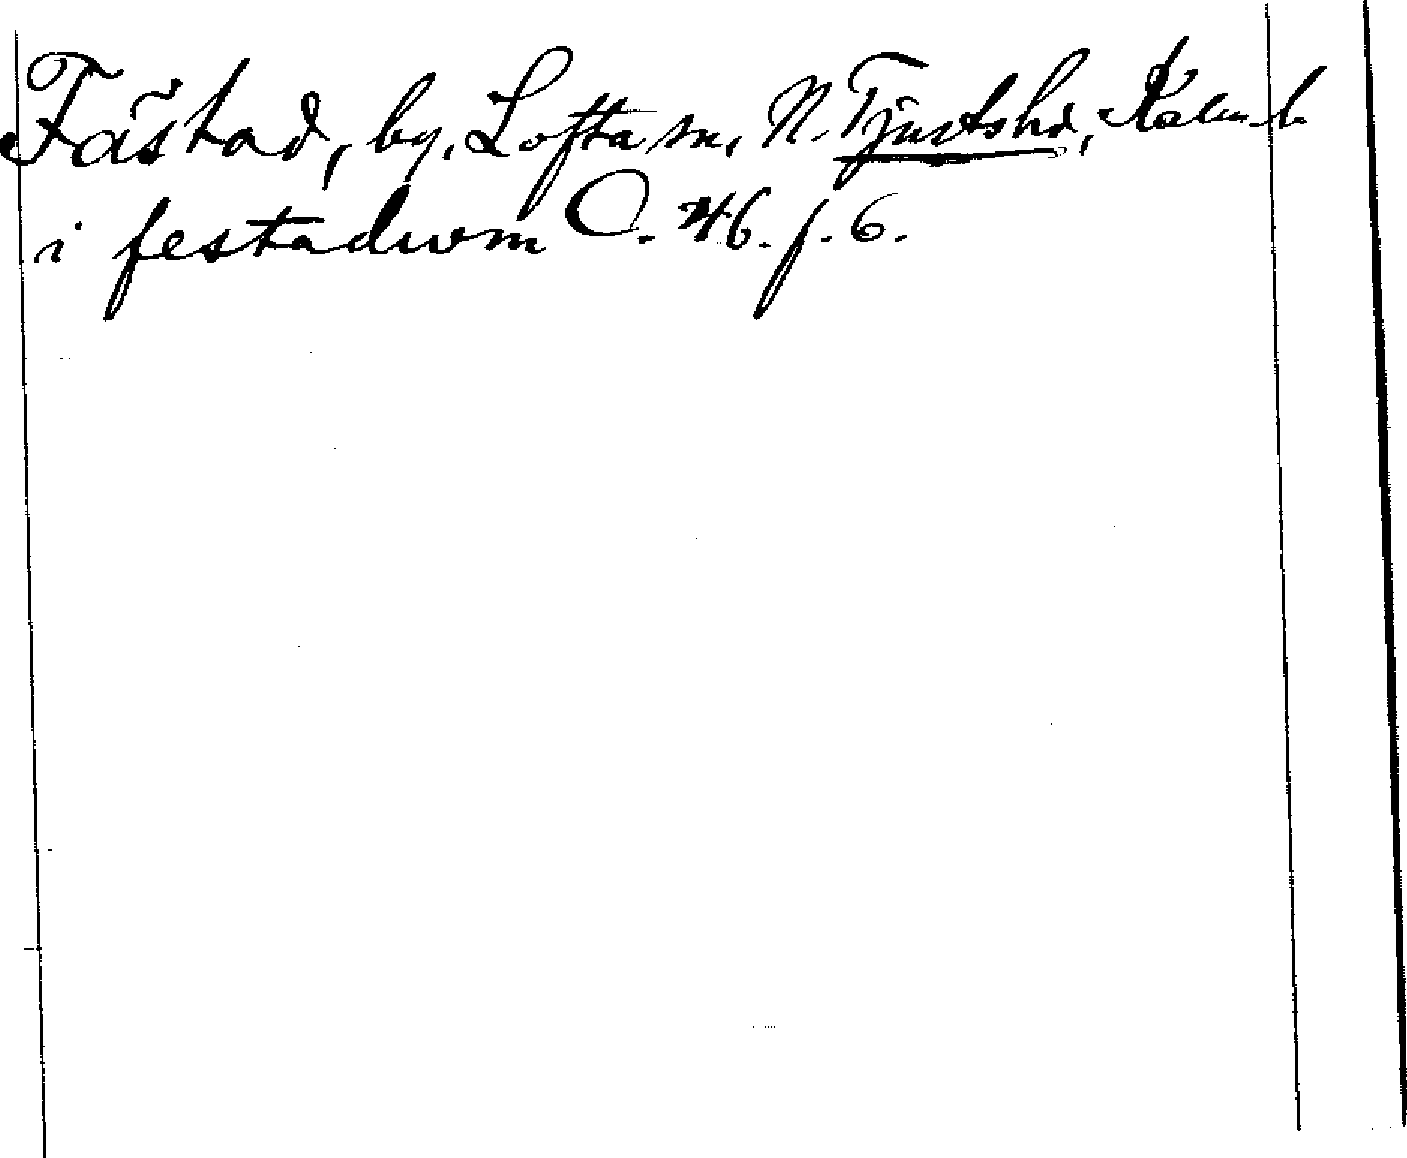 Fästad, by, Lofta sn, N. Tjustshd, Kalm. l.
i festadwm O. 46. f. 6.